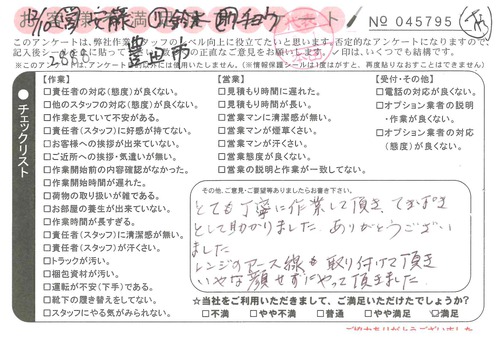 № 045795
2880
豊田市
このアンケートは、弊社作業スタッフのレベル向上に役立てたいと思います。否定的なアンケートになりますので、
※このアンケートは 以外には使用いたしません。(※情報保護シールは1度はがすと、再度貼りなおすことはできません)
●チェックリスト
【作業】
□責任者の対応(態度)が良くない。
□他のスタッフの対応(態度)が良くない。
□作業を見ていて不安がある。
□責任者(スタッフ)に好感が持てない。
□お客様への挨拶が出来ていない。
□ご近所への挨拶・気遣いが無い。
□作業開始前の内容確認がなかった。
□作業開始時間が遅れた。
□荷物の取り扱いが雑である。
□お部屋の養生が出来ていない。
□作業時間が長すぎる。
□責任者(スタッフ)に清潔感が無い。
□責任者(スタッフ)が汗くさい。
□トラックが汚い。
□梱包資材が汚い。
□運転が不安(下手)である。
□靴下の履き替えをしてない。
□スタッフにやる気がみられない。
【営業】
□見積もり時間に遅れた。
□見積もり時間が長い。
□営業マンに清潔感が無い。
□営業マンが煙草くさい。
□営業マンが汗くさい。
□営業態度が良くない。
□営業の説明と作業が一致してない。
【受付・その他】
□電話の対応が良くない。
□オプション業者の説明
・作業が良くない。
□オプション業者の対応
(態度)が良くない。
その他、ご意見・ご要望等ありましたらお書き下さい。
とても丁寧に作業して頂き、てきぱき
として助かりました。ありがとうござい
ました
レンジのアース線も取り付けて頂き
いやな顔せずにやって頂きました
☆当社をご利用いただきまして、ご満足いただけたでしょうか?
□不満 □やや不満 □普通 □やや満足 □満足
ご協力ありがとうございました